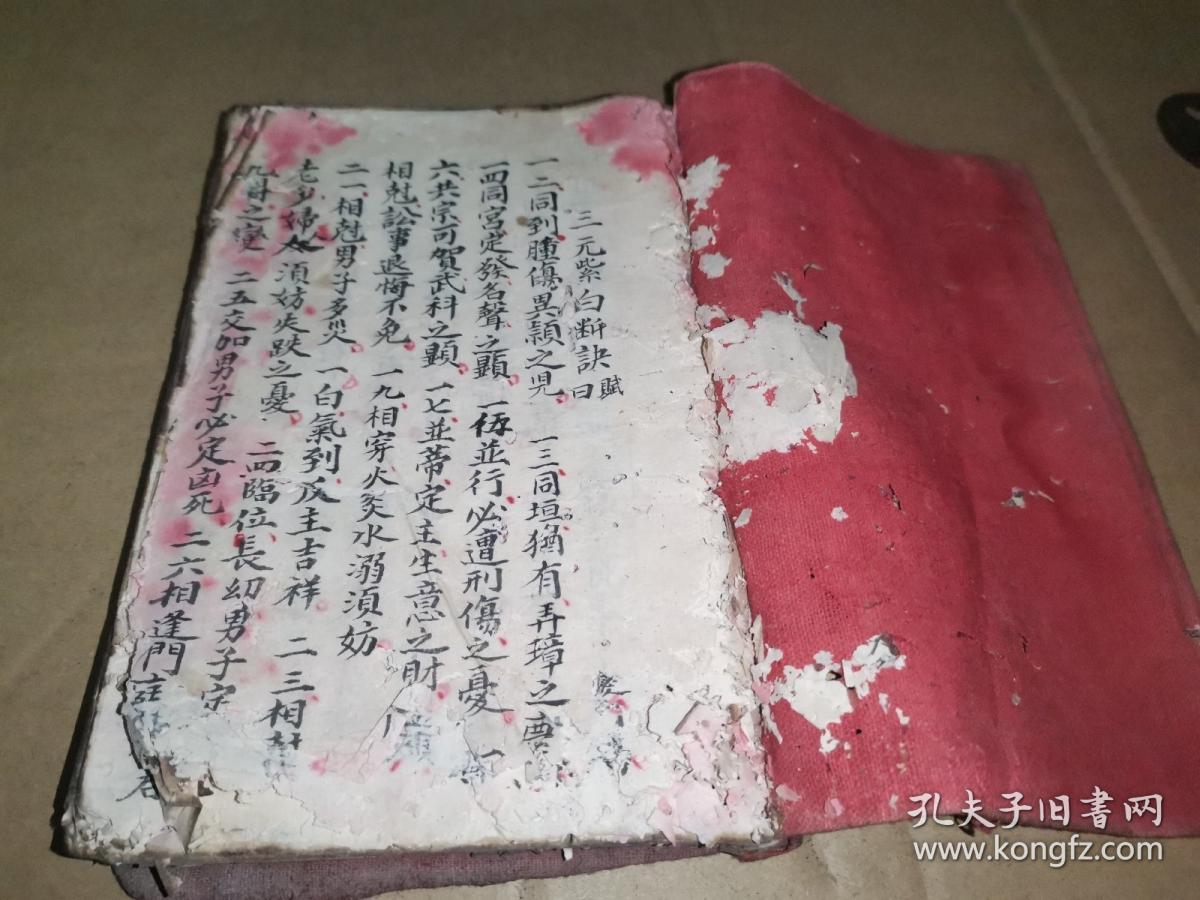 三元紫白断訣賦曰
一二同到腫傷異顙之児 一三同垣猶有弄璋之
一四同宮定發名聲之顕 一伍並行必遭刑傷之憂 一
六共宗可賀武科之顕 一七並蒂定主生意之財 一八
相尅訟事退悔不免 一九相穿火炎水溺須妨
二一相尅男子多災 一白氣到反主吉祥 二三相
老少婦人須妨失跌之憂 二四臨位長幼男子定
之變 二五交加男子必定凶死 二六相逢門庭
孔夫子旧書网
www.kongfz.com